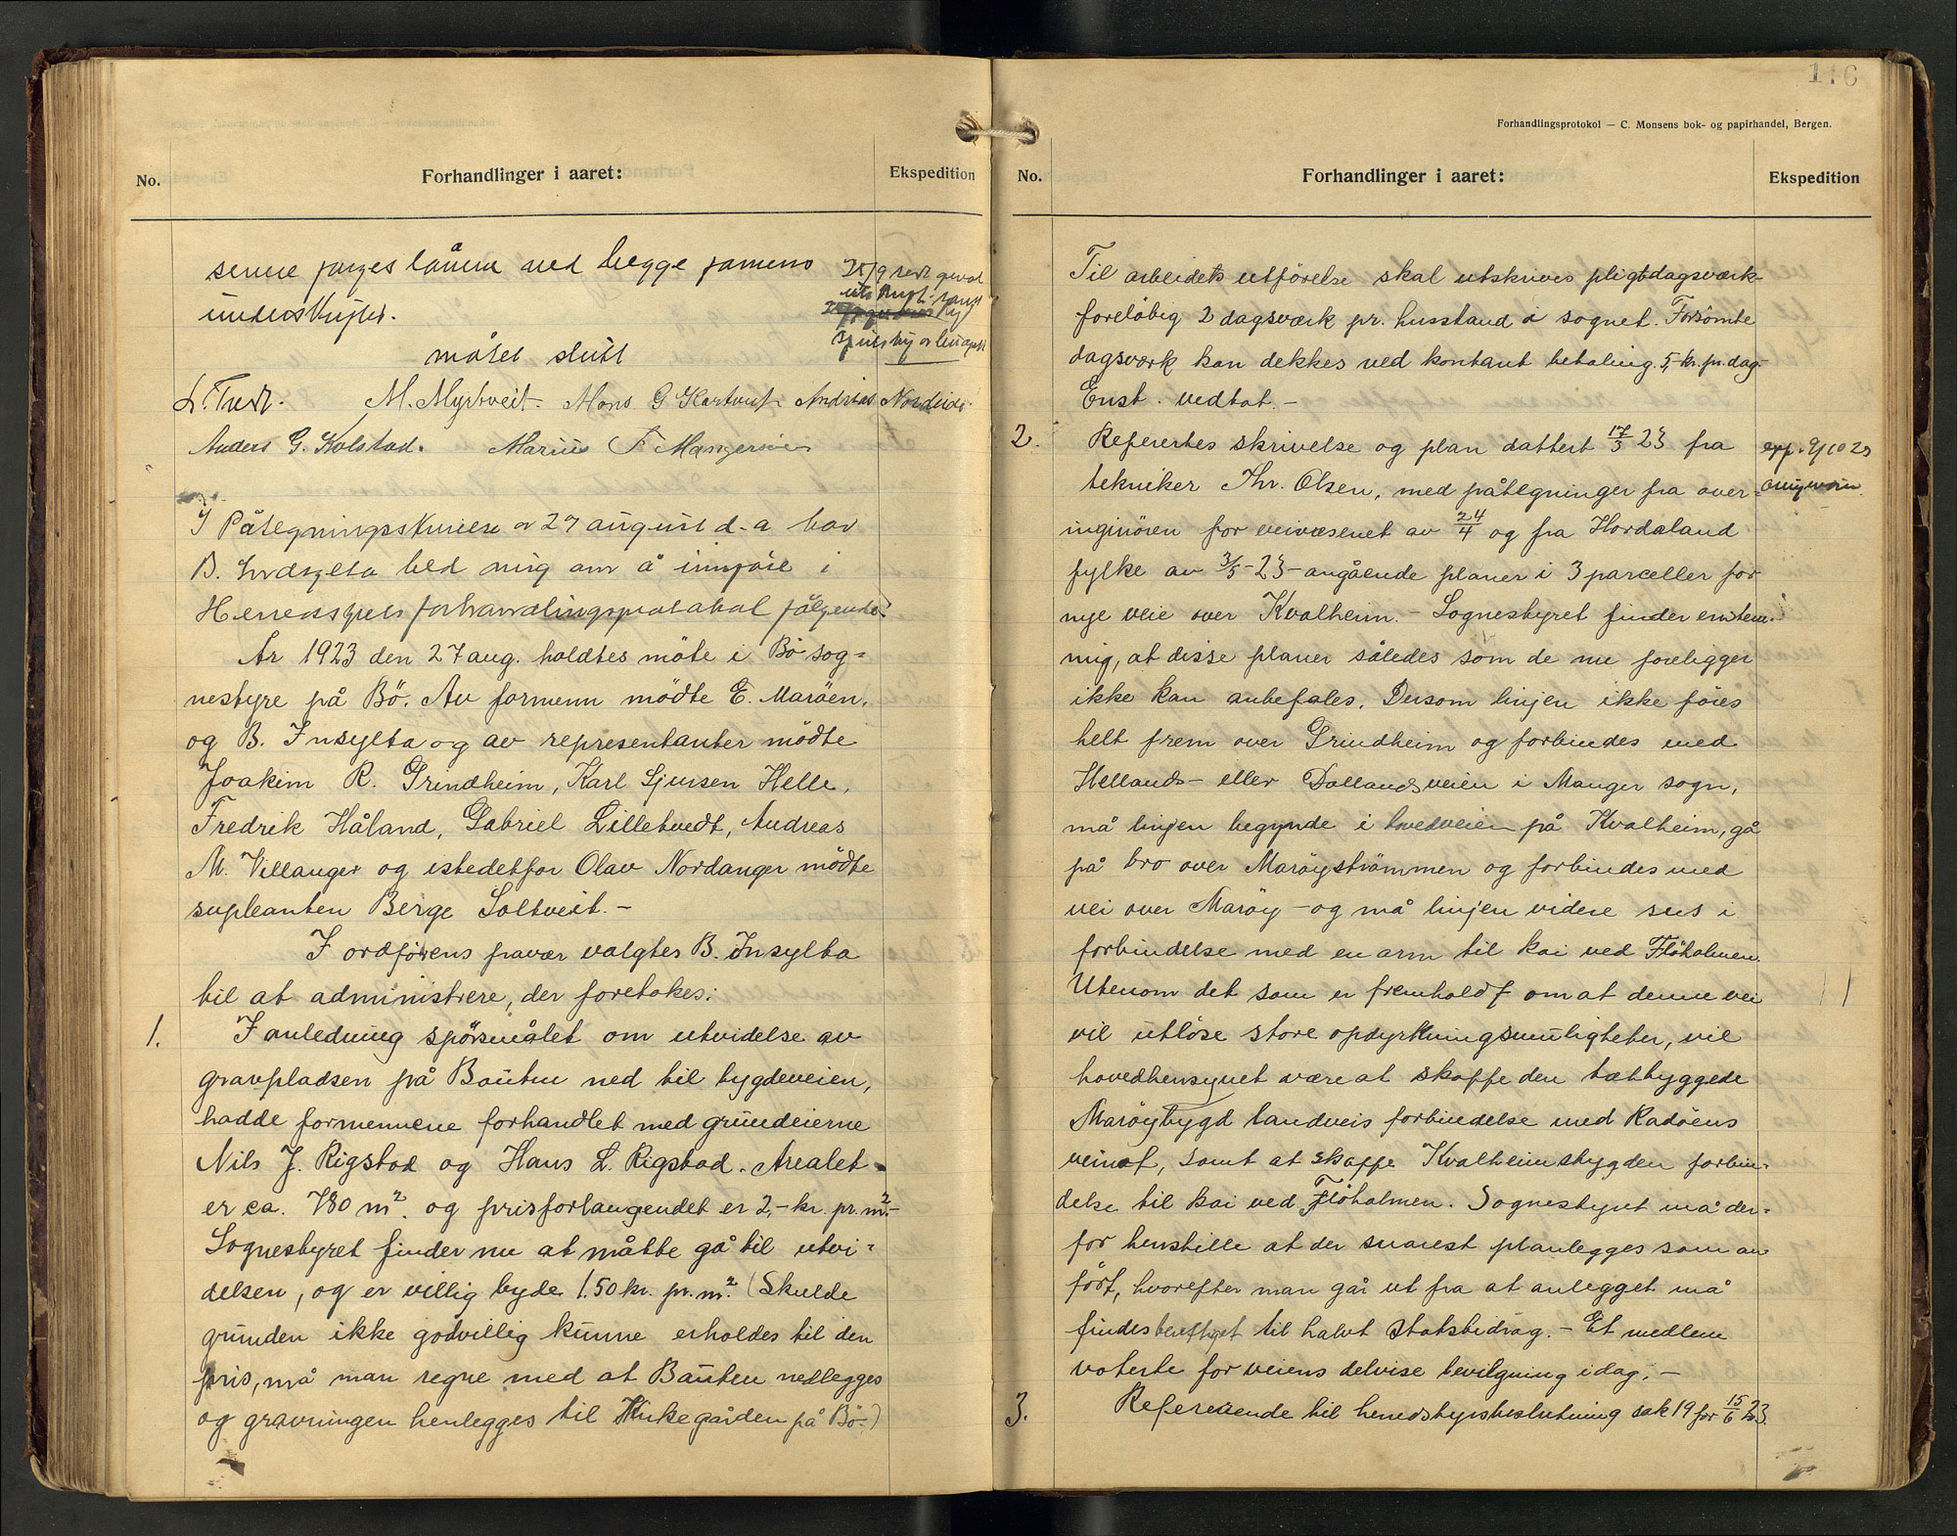 No.
Forhandlinger i aaret:
Ekspedition
begge
møtet slutt
M. Myrtveit. Mons G Andreas
Anders G. Kolstad. Marius
I av 27 august d. a har
B. bed mig om å innføie i
forhandlingsprotokol følgende:
År 1923 den 27 aug. holdtes møte i Bø sog=
nestyre på Bö. Av formenn mödte E. Maröen,
og B. Insylta og av representanter mödte
Joakim R. Grindheim, Karl Sjursen Helle,
Fredrik Håland, Gabriel Lilletvedt, Andreas
M. Villanger og istedetfor Olav Nordanger mödte
supleanten Berge Soltveit. –
I ordförens fravær valgtes B. Insylta
til at administrere, der foretokes:
1.
I anledning spörsmålet om utvidelse av
gravpladsen på Bouten ned til bygdeveien,
hadde formennene forhandlet med grundeierne
Nils J. Rigstad og Hans L. Rigstad. Arealet
er ca. 780 m². og prisforlangendet er 2,- kr. pr. m².-
Sognestyret finder nu at måtte gå til utvi=
delsen, og er villig byde 1.50 kr. pr. m². (Skulde
grunden ikke godvillig kunne erholdes til den
pris, må man regne med at Bouten nedlegges
og gravningen henlegges til Kirkegården på Bö.)
116
Forhandlingsprotokol — C. Monsens bok- og papirhandel, Bergen.
No.
Forhandlinger i aaret:
Ekspedition
Til arbeidets utförelse skal utskrives pligtdagsværk
foreløbig 2 dagsværk pr. husstand i sognet. Forsömte
dagsværk kan dekkes ved kontant betaling. 5,- kr. pr. dag.
Enst. vedtat. –
2.
Referertes skrivelse og plan dattert 17/3 23 fra
exp. 9/10 23
tekniker Thr. Olsen, med påtegninger fra over=
inginören for veivæsenet av 24/4 og fra Hordaland
fylke av 3/5-23- angående planer i 3 parceller for
nye veie over Kvalheim. – Sognestyret finder enstem=
mig, at disse planer således som de nu foreligger
ikke kan anbefales. Dersom linjen ikke föres
helt frem over Grindheim og forbindes med
Hellands- eller Dallandsveien i Manger sogn,
må linjen begynde i hovedveien på Kvalheim, gå
på bro over Maröyströmmen og forbindes med
vei over Maröy – og må linjen videre sees i
forbindelse med en arm til kai ved Flöholmen.
Utenom det som er fremholdt om at denne vei
vil utlöse store opdyrkningsmuligheter, vil
hovedhensynet være at skaffe den tætbyggede
Maröybygd landveis forbindelse med Radöens
veinet, samt at skaffe Kvalheimsbygden forbin=
delse til kai ved Flöholmen. Sognestyret må der=
for henstille at der snarest planlegges som an=
fört, hvorefter man går ut fra at anlegget må
findes berettiget til halvt statsbidrag. – Et medlem
voterte for veiens delvise bevilgning idag. –
3.
Refererende til herredstyrebeslutning sak 19 for 15/6 23.